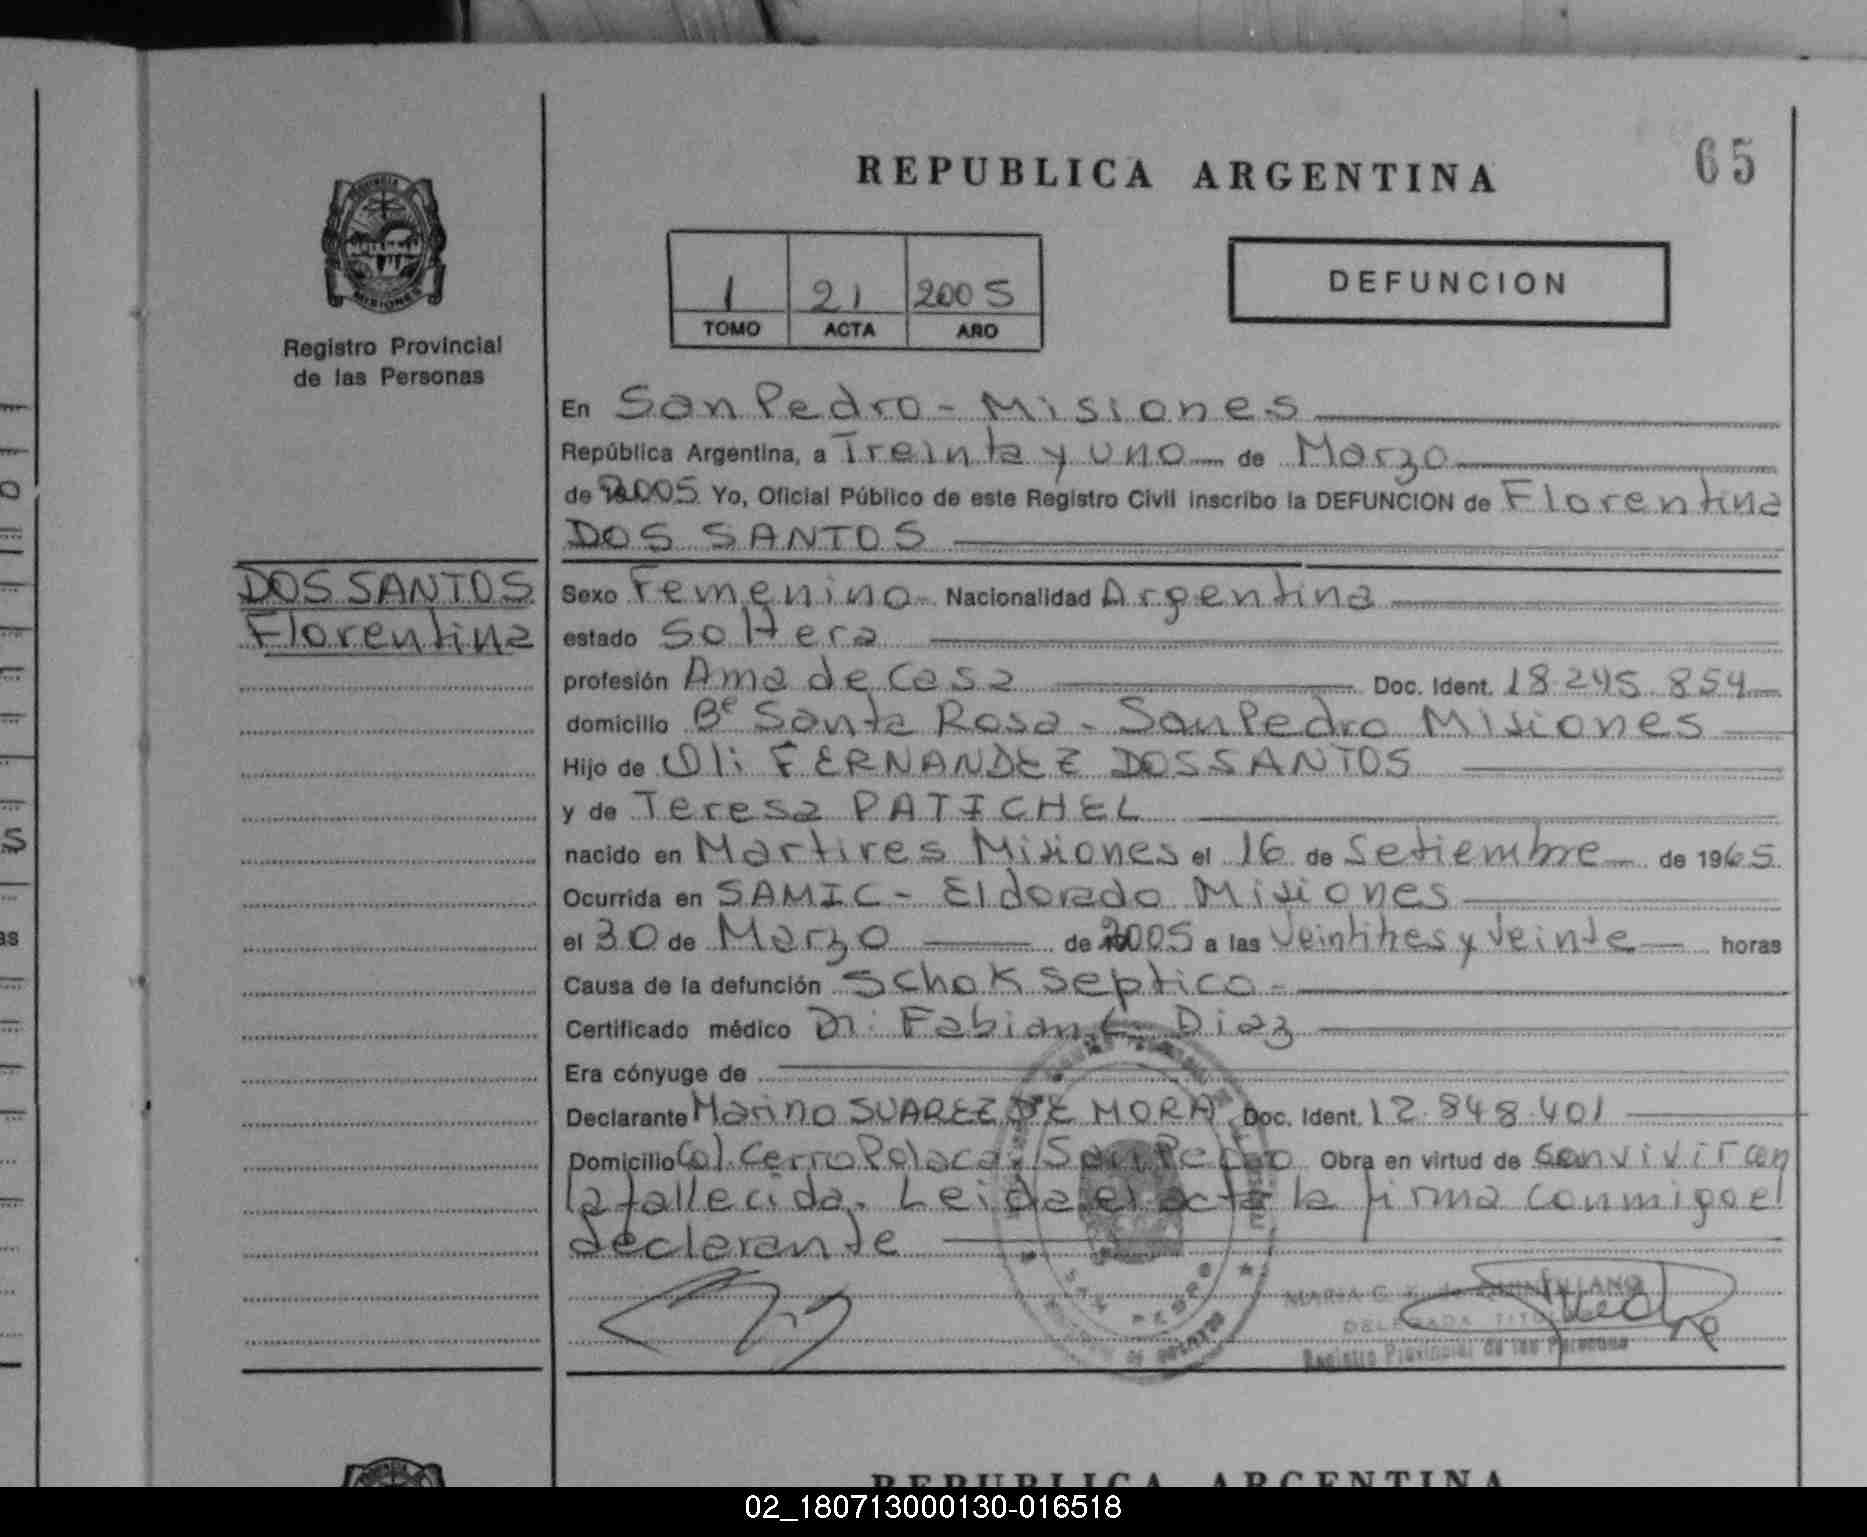 65
REPUBLICA ARGENTINA
1 21 2005
TOMO ACTA AÑO
DEFUNCION
PROVINCIA
MISIONES
Registro Provincial
de las Personas
En San Pedro - Misiones
República Argentina, a Treinta y uno de Marzo
de 2005 Yo, Oficial Público de este Registro Civil inscribo la DEFUNCION de Florentina
DOS SANTOS
DOS SANTOS
Florentina
Sexo Femenino Nacionalidad Argentina
estado Soltera
profesión Ama de Casa Doc. Ident. 18.245.854
domicilio Bº Santa Rosa - San Pedro Misiones
Hijo de Oli FERNANDEZ DOS SANTOS
y de Teresa PATICHEL
nacido en Martires Misiones el 16 de Setiembre de 1965
Ocurrida en SAMIC - Eldorado Misiones
el 30 de Marzo de 2005 a las Veintitres y Veinte horas
Causa de la defunción Schok Septico -
Certificado médico Dr. Fabian Diaz
Era cónyuge de
Declarante Marino SUAREZ DE MORA Doc. Ident. 12.848.401
Domicilio Col. Cerro Polaca. San Pedro Obra en virtud de convivir con
la fallecida. Leida el acta la firma conmigo el
declarante
SAN PEDRO
MARIA G. de QUINTILIANO
DELEGADA TITULAR
Registro Provincial de las Personas
REPUBLICA ARGENTINA
02_180713000130-016518